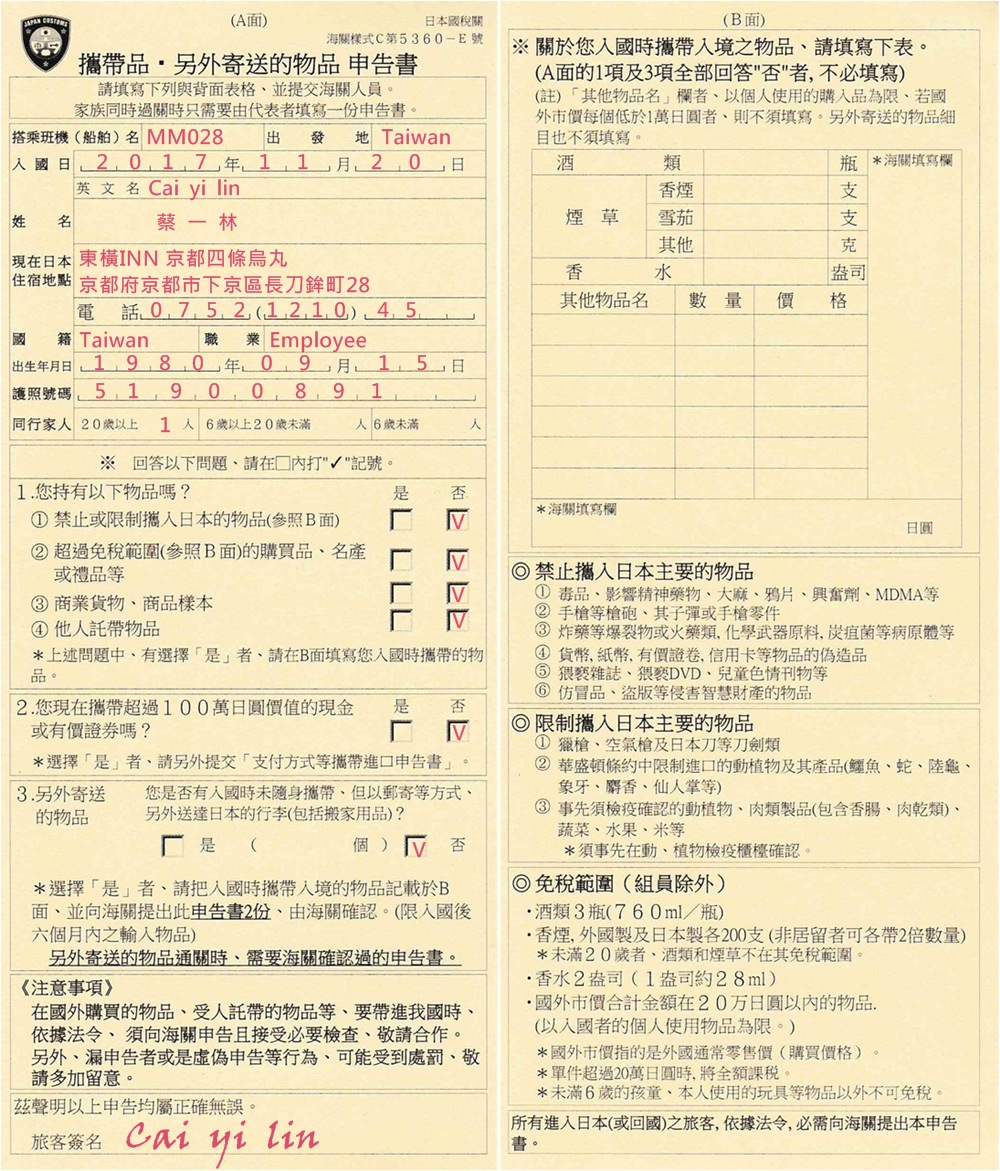 JAPAN CUSTOMS
(A面)
日本國稅關
海關樣式C第5360-E號
攜帶品・另外寄送的物品 申告書
請填寫下列與背面表格、並提交海關人員。
家族同時過關時只需要由代表者填寫一份申告書。
搭乘班機(船舶)名 MM028 出發地 Taiwan
入國日 2017年11月20日
英文名 Cai yi lin
姓名 蔡一林
現在日本住宿地點 東橫INN 京都四條烏丸
京都府京都市下京區長刀鉾町28
電話 0752(1210)45
國籍 Taiwan 職業 Employee
出生年月日 1980年09月15日
護照號碼 51900891
同行家人 20歲以上 1人 6歲以上20歲未滿 人 6歲未滿 人
※ 回答以下問題、請在□內打"✓"記號。
1.您持有以下物品嗎? 是 否
① 禁止或限制攜入日本的物品(參照B面) V
② 超過免稅範圍(參照B面)的購買品、名產
或禮品等 V
③ 商業貨物、商品樣本 V
④ 他人託帶物品 V
*上述問題中、有選擇「是」者、請在B面填寫您入國時攜帶的物
品。
2.您現在攜帶超過100萬日圓價值的現金 是 否
或有價證券嗎? V
*選擇「是」者、請另外提交「支付方式等攜帶進口申告書」。
3.另外寄送的物品 您是否有入國時未隨身攜帶、但以郵寄等方式、
另外送達日本的行李(包括搬家用品)?
是 ( 個 ) V 否
*選擇「是」者、請把入國時攜帶入境的物品記載於B
面、並向海關提出此申告書2份、由海關確認。(限入國後
六個月內之輸入物品)
另外寄送的物品通關時、需要海關確認過的申告書。
《注意事項》
在國外購買的物品、受人託帶的物品等、要帶進我國時、
依據法令、須向海關申告且接受必要檢查、敬請合作。
另外、漏申告者或是虛偽申告等行為、可能受到處罰、敬
請多加留意。
茲聲明以上申告均屬正確無誤。
旅客簽名 Cai yi lin
(B面)
※ 關於您入國時攜帶入境之物品、請填寫下表。
(A面的1項及3項全部回答"否"者, 不必填寫)
(註)「其他物品名」欄者、以個人使用的購入品為限、若國
外市價每個低於1萬日圓者、則不須填寫。另外寄送的物品細
目也不須填寫。
酒類 瓶 *海關填寫欄
煙草 香煙 支
雪茄 支
其他 克
香水 盎司
其他物品名 數量 價格
*海關填寫欄
日圓
◎ 禁止攜入日本主要的物品
① 毒品、影響精神藥物、大麻、鴉片、興奮劑、MDMA等
② 手槍等槍砲、其子彈或手槍零件
③ 炸藥等爆裂物或火藥類, 化學武器原料, 炭疽菌等病原體等
④ 貨幣, 紙幣, 有價證卷, 信用卡等物品的偽造品
⑤ 猥褻雜誌、猥褻DVD、兒童色情刊物等
⑥ 仿冒品、盜版等侵害智慧財產的物品
◎ 限制攜入日本主要的物品
① 獵槍、空氣槍及日本刀等刀劍類
② 華盛頓條約中限制進口的動植物及其產品(鱷魚、蛇、陸龜、
象牙、麝香、仙人掌等)
③ 事先須檢疫確認的動植物、肉類製品(包含香腸、肉乾類)、
蔬菜、水果、米等
*須事先在動、植物檢疫櫃檯確認。
◎ 免稅範圍(組員除外)
・酒類3瓶(760ml/瓶)
・香煙, 外國製及日本製各200支 (非居留者可各帶2倍數量)
*未滿20歲者、酒類和煙草不在其免稅範圍。
・香水2盎司(1盎司約28ml)
・國外市價合計金額在20万日圓以內的物品.
(以入國者的個人使用物品為限。)
*國外市價指的是外國通常零售價(購買價格)。
*單件超過20萬日圓時, 將全額課稅。
*未滿6歲的孩童、本人使用的玩具等物品以外不可免稅。
所有進入日本(或回國)之旅客, 依據法令, 必需向海關提出本申告
書。